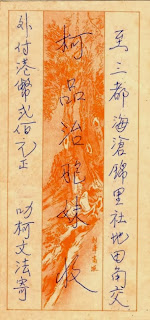 至三都海滄錦里社地田角交
柯品治胞妹收
外付港幣弍佰元正
叻柯文法寄